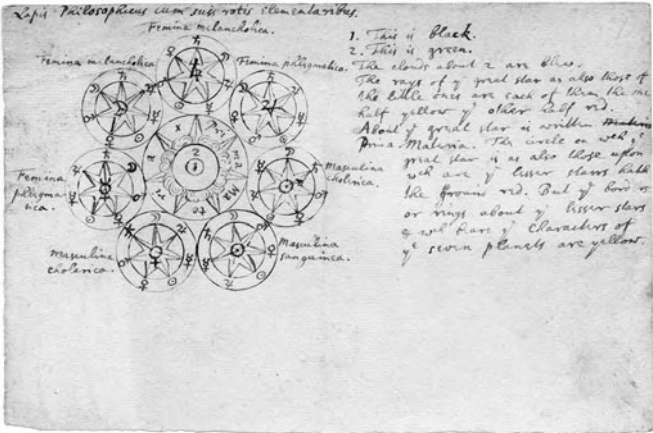 Lapis Philosophicus cum suis rotis elementaribus.
Femina melancholica.
Femina melancholica
Femina phlegmatica.
Femina
phlegma
tica.
Masculina
cholerica.
Masculina
cholerica.
Masculina
sanguinea.
Prima Materia
2
1
1. This is black.
2. This is green.
The clouds about 2 are blew.
The rays of yᵉ great star as also those of
the little ones are each of them the one
half yellow yᵉ other half red.
About yᵉ great star is written
Prima. Materia. The circle on wᶜʰ yᵉ
great star is as also those upon
wᶜʰ are yᵉ lesser starrs hath
the ground red. But yᵉ borders
or rings about yᵉ lesser stars
& wᶜʰ beare yᵉ characters of
yᵉ seven planets are yellow.